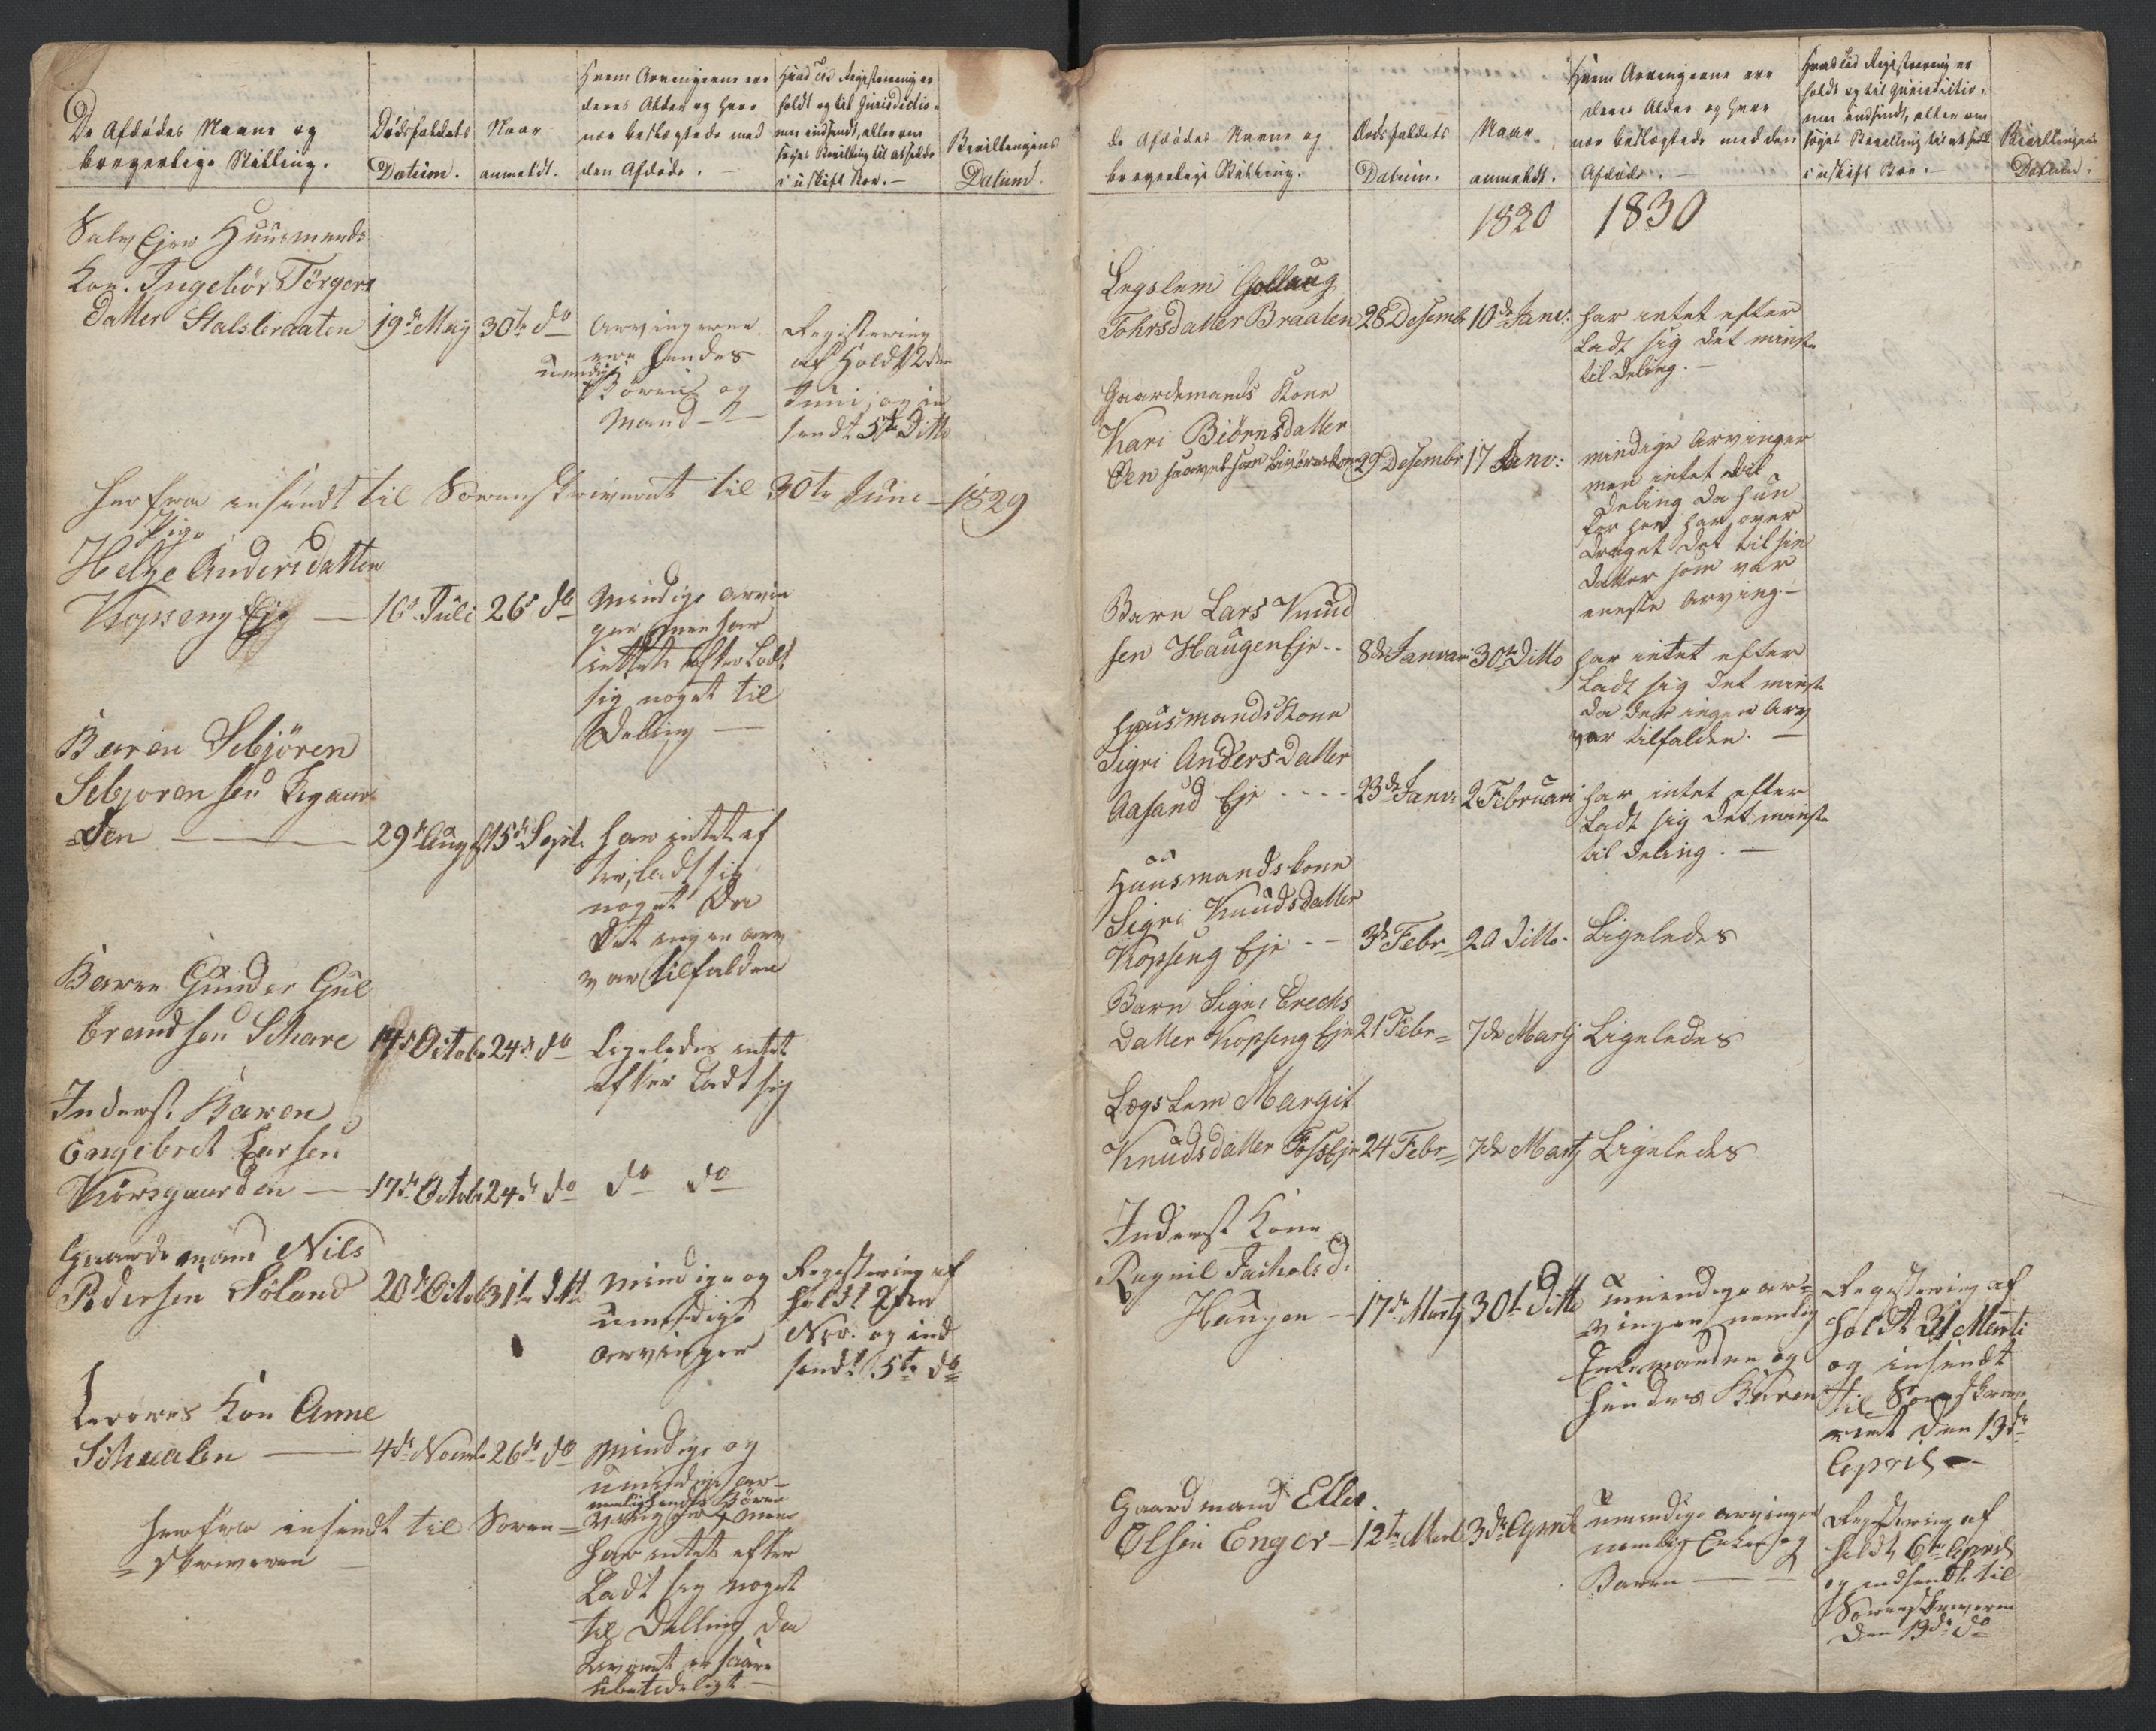 De Afdødes Navne og
borgerlige Stilling.
Dødsfaldets
Datum.
Naar
anmeldt.
Hvem Arvingerne ere
deres Alder og hvor
nær beslægtede med
den Afdøde. —
Hvad Tid Registrering er
holdt og til Jurisdictio-
nen indsendt, eller om
søges Bevilling til at sidde
i uskift Boe. —
Bevillingens
Datum.
Selv Ejer Huusmands
Kon. Ingebør Torgers
Datter Halsteraaten 19de Maij 30te do
Arvingerne
ere hendes
umdige
Børen og
Mand —
Registering
af Holdt 2den
Juni, og in
sendt 5te Ditto
herfra insendt til Sorenskriveret til 30te Juni — 1829
Pige
Helge Andersdatter
Kopseng Eje — 16d Juli 26d do
Mindige Arvin
ger men har
intet efter Ladt
sig noget til
Deling —
Baren Sebjören
Sebjorensen Lygaar
den — 29de Augst 15de Sept.
har intet ef
ter, ladt sig
noget da
Det ingen arv
var tilfalden
Baren Gunder Gul
brandsen Schare 14de Octobr 24de do
Ligeledes intet
efter Ladt sig
Inderst. Baren
Engebret Larsen
Korsgaarden — 17de Octobr 24de do
do do
Gaardemand Nils
Pedersen Soland 20de Octob 31te ditt
Mindige og
umindige
arvinger
Registering af
holdt 2den
Nov. og ind
sendt 15te do
Kon Anne
Schualen — 4de Novembr 26de do
Mindige og
umindige ar-
nemlig hendes Börne
vinger men
har intet efter
Ladt sig noget
til Delling da
er saare
ubetideligt —
herfra insendt til Soren-
skriveren —
de Afdødes Navne og
borgerlige Stilling.
Dødsfaldets
Datum.
Naar
anmeldt.
Hvem Arvingerne ere
deres Alder og hvor
nær beslægtede med den
Afdøde. —
Hvad Tid Registrering er
holdt og til Jurisdictio-
nen indsendt, eller om
søges Bevilling til at sidde
i uskift Boe. —
Bevillingens
Datum.
1820 1830
Legslem Gollaug
Tohrsdatter Braaten 28 Desembr 10de Janv:
har intet efter
Ladt sig det minste
til Deling. —
Gaardemands Kone
Kari Biörnsdatter
29 Desembr 17 Janv:
mindige Arvinger
men intet til
Deling da hun
for her har over
draget det til sin
Datter som var
eneste Arving —
Barn Lars Knud
sen Haugen Eje - - 8de Januari 30te Ditto
har intet efter
Ladt sig det minste
da der ingen Arv
var tilfalden. —
HuusmandsKone
Sigri AndersDatter
Aasand Eje - - - - 23de Janv: 2 Februari
har intet efter
Ladt sig det minste
til Deling. —
Huusmandskone
Sigri Knudsdatter
Kopseng Eje - - 3de Febr 20 Ditto.
Ligeledes
Barn Sigri Erechs
Datter Kopseng Eje 21 Febr 7de Martj
Ligeledes
LegsLem Margit
Knudsdatter FossEje 24 Febr 7de Martj
Ligeledes
Inderst Kone
Ragnil Jachols d:
Haugen — 17de Martj 30te Ditto
umindige ar-
vinger, nemlig
Enkemanden og
hendes Børen
Registering af
holdt 31 Marti
og insendt
til Sorenskrive
ret den 13de
April —
Gaardmand Elles
Olsen Enger — 12te Mart 3de April
umindige arvinger
nemlig Enken og
Baren —
Registering af
holdt 6te April
og indsendt til
Sorenskriveren
den 13de do